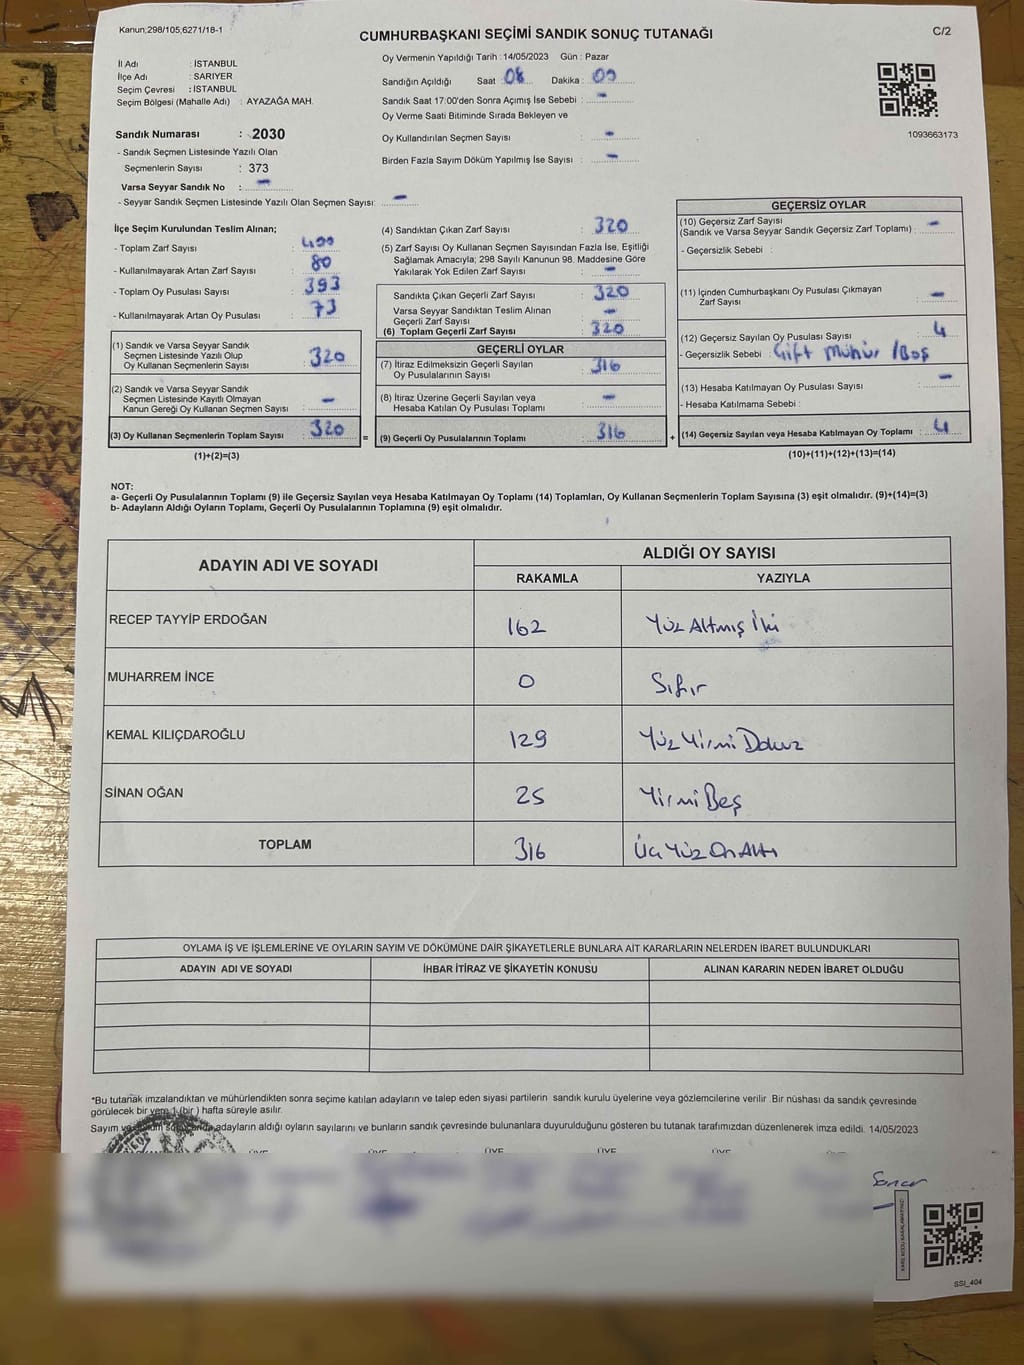 Kanun;298/105;6271/18-1
CUMHURBAŞKANI SEÇİMİ SANDIK SONUÇ TUTANAĞI
C/2
İl Adı : İSTANBUL
İlçe Adı : SARIYER
Seçim Çevresi : İSTANBUL
Seçim Bölgesi (Mahalle Adı) : AYAZAĞA MAH.
Sandık Numarası : 2030
- Sandık Seçmen Listesinde Yazılı Olan
Seçmenlerin Sayısı : 373
Varsa Seyyar Sandık No : -
- Seyyar Sandık Seçmen Listesinde Yazılı Olan Seçmen Sayısı: -
Oy Vermenin Yapıldığı Tarih :14/05/2023 Gün : Pazar
Sandığın Açıldığı Saat : 08 Dakika : 00
Sandık Saat 17:00'den Sonra Açımış İse Sebebi : -
Oy Verme Saati Bitiminde Sırada Bekleyen ve
Oy Kullandırılan Seçmen Sayısı : -
Birden Fazla Sayım Döküm Yapılmış İse Sayısı : -
1093663173
İlçe Seçim Kurulundan Teslim Alınan;
- Toplam Zarf Sayısı : 400
- Kullanılmayarak Artan Zarf Sayısı : 80
- Toplam Oy Pusulası Sayısı : 393
- Kullanılmayarak Artan Oy Pusulası : 73
(1) Sandık ve Varsa Seyyar Sandık
Seçmen Listesinde Yazılı Olup
Oy Kullanan Seçmenlerin Sayısı : 320
(2) Sandık ve Varsa Seyyar Sandık
Seçmen Listesinde Kayıtlı Olmayan
Kanun Gereği Oy Kullanan Seçmen Sayısı : -
(3) Oy Kullanan Seçmenlerin Toplam Sayısı : 320
(1)+(2)=(3)
(4) Sandıktan Çıkan Zarf Sayısı : 320
(5) Zarf Sayısı Oy Kullanan Seçmen Sayısından Fazla İse, Eşitliği
Sağlamak Amacıyla; 298 Sayılı Kanunun 98. Maddesine Göre
Yakılarak Yok Edilen Zarf Sayısı : -
Sandıkta Çıkan Geçerli Zarf Sayısı : 320
Varsa Seyyar Sandıktan Teslim Alınan
Geçerli Zarf Sayısı : -
(6) Toplam Geçerli Zarf Sayısı : 320
GEÇERLİ OYLAR
(7) İtiraz Edilmeksizin Geçerli Sayılan
Oy Pusulalarının Sayısı : 316
(8) İtiraz Üzerine Geçerli Sayılan veya
Hesaba Katılan Oy Pusulası Toplamı : -
= (9) Geçerli Oy Pusulalarının Toplamı : 316 +
GEÇERSİZ OYLAR
(10) Geçersiz Zarf Sayısı
(Sandık ve Varsa Seyyar Sandık Geçersiz Zarf Toplamı) : -
- Geçersizlik Sebebi :
(11) İçinden Cumhurbaşkanı Oy Pusulası Çıkmayan
Zarf Sayısı : -
(12) Geçersiz Sayılan Oy Pusulası Sayısı : 4
- Geçersizlik Sebebi : Çift Mühür / Boş
(13) Hesaba Katılmayan Oy Pusulası Sayısı : -
- Hesaba Katılmama Sebebi :
(14) Geçersiz Sayılan veya Hesaba Katılmayan Oy Toplamı : 4
(10)+(11)+(12)+(13)=(14)
NOT:
a- Geçerli Oy Pusulalarının Toplamı (9) ile Geçersiz Sayılan veya Hesaba Katılmayan Oy Toplamı (14) Toplamları, Oy Kullanan Seçmenlerin Toplam Sayısına (3) eşit olmalıdır. (9)+(14)=(3)
b- Adayların Aldığı Oyların Toplamı, Geçerli Oy Pusulalarının Toplamına (9) eşit olmalıdır.
ADAYIN ADI VE SOYADI
ALDIĞI OY SAYISI
RAKAMLA YAZIYLA
RECEP TAYYİP ERDOĞAN 162 Yüz Altmış İki
MUHARREM İNCE 0 Sıfır
KEMAL KILIÇDAROĞLU 129 Yüz Yirmi Dokuz
SİNAN OĞAN 25 Yirmi Beş
TOPLAM 316 Üç Yüz On Altı
OYLAMA İŞ VE İŞLEMLERİNE VE OYLARIN SAYIM VE DÖKÜMÜNE DAİR ŞİKAYETLERLE BUNLARA AİT KARARLARIN NELERDEN İBARET BULUNDUKLARI
ADAYIN ADI VE SOYADI İHBAR İTİRAZ VE ŞİKAYETİN KONUSU ALINAN KARARIN NEDEN İBARET OLDUĞU
*Bu tutanak imzalandıktan ve mühürlendikten sonra seçime katılan adayların ve talep eden siyasi partilerin sandık kurulu üyelerine veya gözlemcilerine verilir. Bir nüshası da sandık çevresinde
görülecek bir yere 1 (bir ) hafta süreyle asılır.
Sayım ve adayların aldığı oyların sayılarını ve bunların sandık çevresinde bulunanlara duyurulduğunu gösteren bu tutanak tarafımızdan düzenlenerek imza edildi. 14/05/2023
ÜYE ÜYE ÜYE ÜYE ÜYE ÜYE
KARE KODU KARALAMAYINIZ
SSİ_404